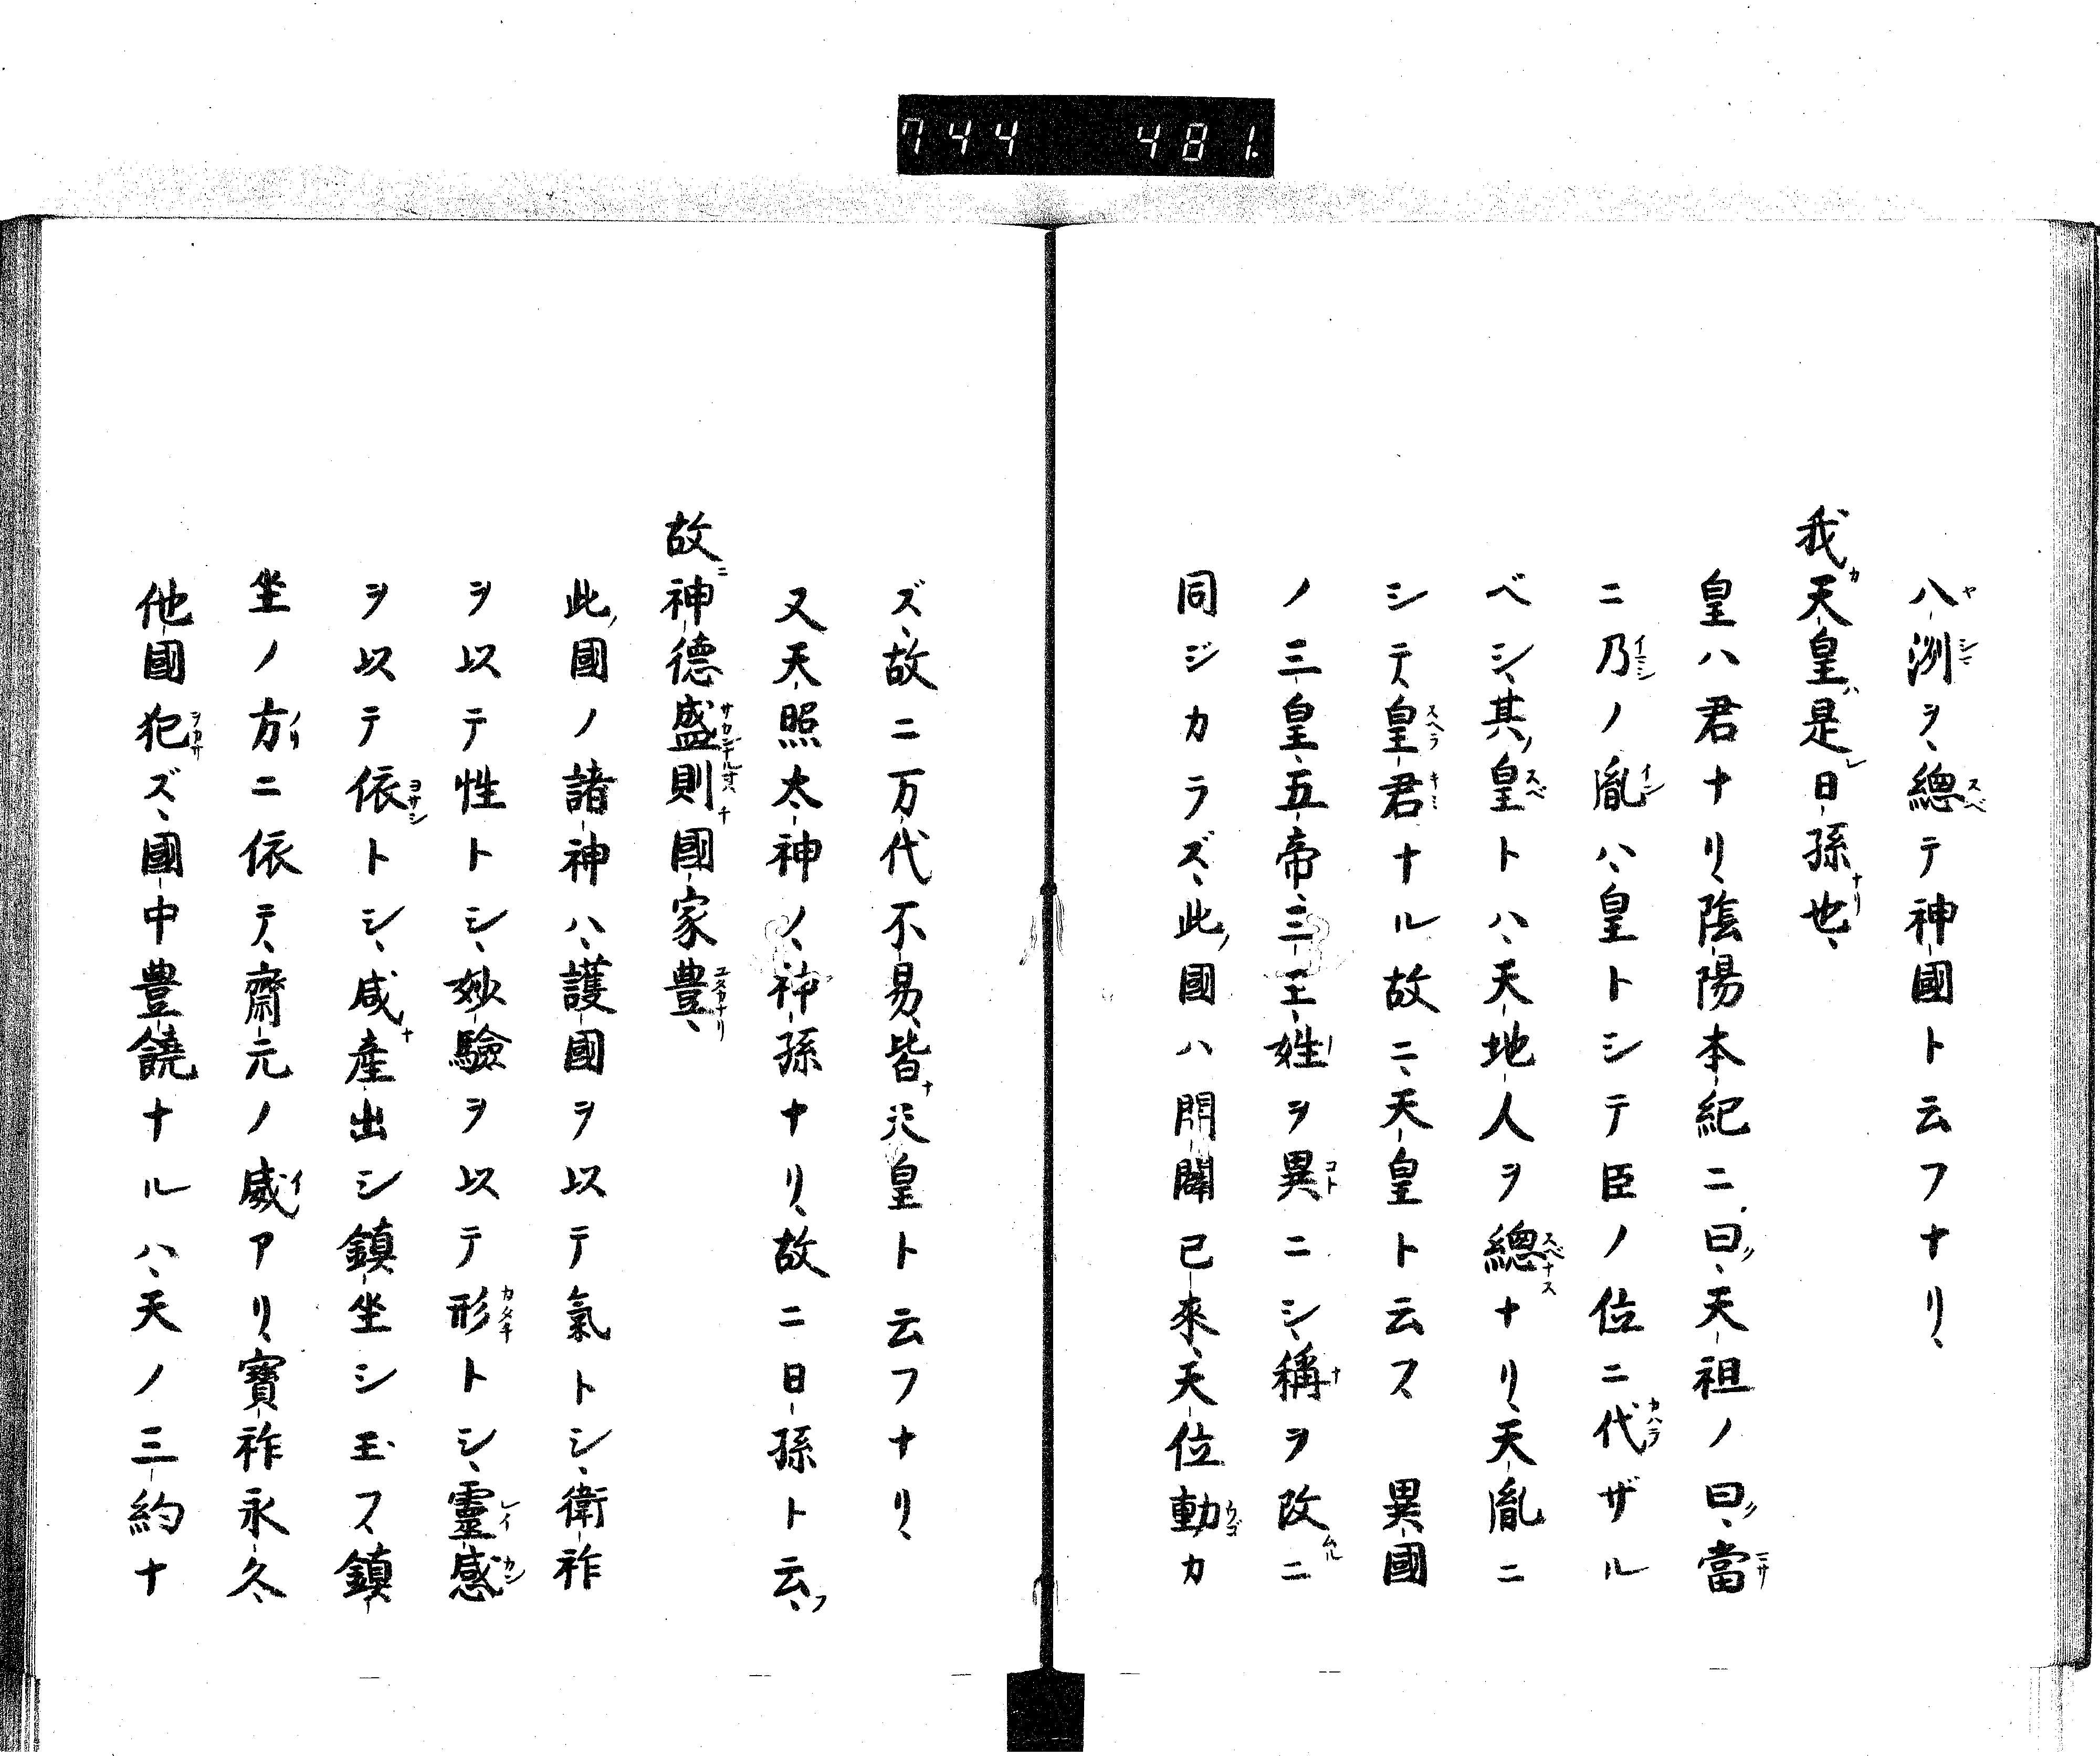 744 481.
八洲ヲ、總テ神國ト云フナリ、
我天皇ハ是レ日孫也、
皇ハ君ナリ、陰陽本紀ニ曰ク、天祖ノ曰ク、當
ニ乃ノ胤ハ、皇トシテ臣ノ位ニ代ザル
ベシ、其ノ皇トハ、天地人ヲ總ナリ、天胤ニ
シテ、皇君ナル故ニ、天皇ト云ス 異國
ノ三皇、五帝、三王、姓ヲ異ニシ、稱ヲ改ムルニ
同ジカラズ、此ノ國ハ開闢已來、天位動カ
ズ、故ニ万代不易、皆ナ天皇ト云フナリ、
又天照太神ノ、神孫ナリ、故ニ日孫ト云フ、
故ニ神德盛則國家豊、
此ノ國ノ諸神ハ、護國ヲ以テ氣トシ、衛祚
ヲ以テ性トシ、妙驗ヲ以テ形トシ、靈感
ヲ以テ依トシ、咸ナ產出シ鎮坐シ玉ス、鎮
坐ノ方ニ依テ、齋元ノ威アリ、寶祚永久、
他國犯ズ、國中豊饒ナルハ、天ノ三約ナ